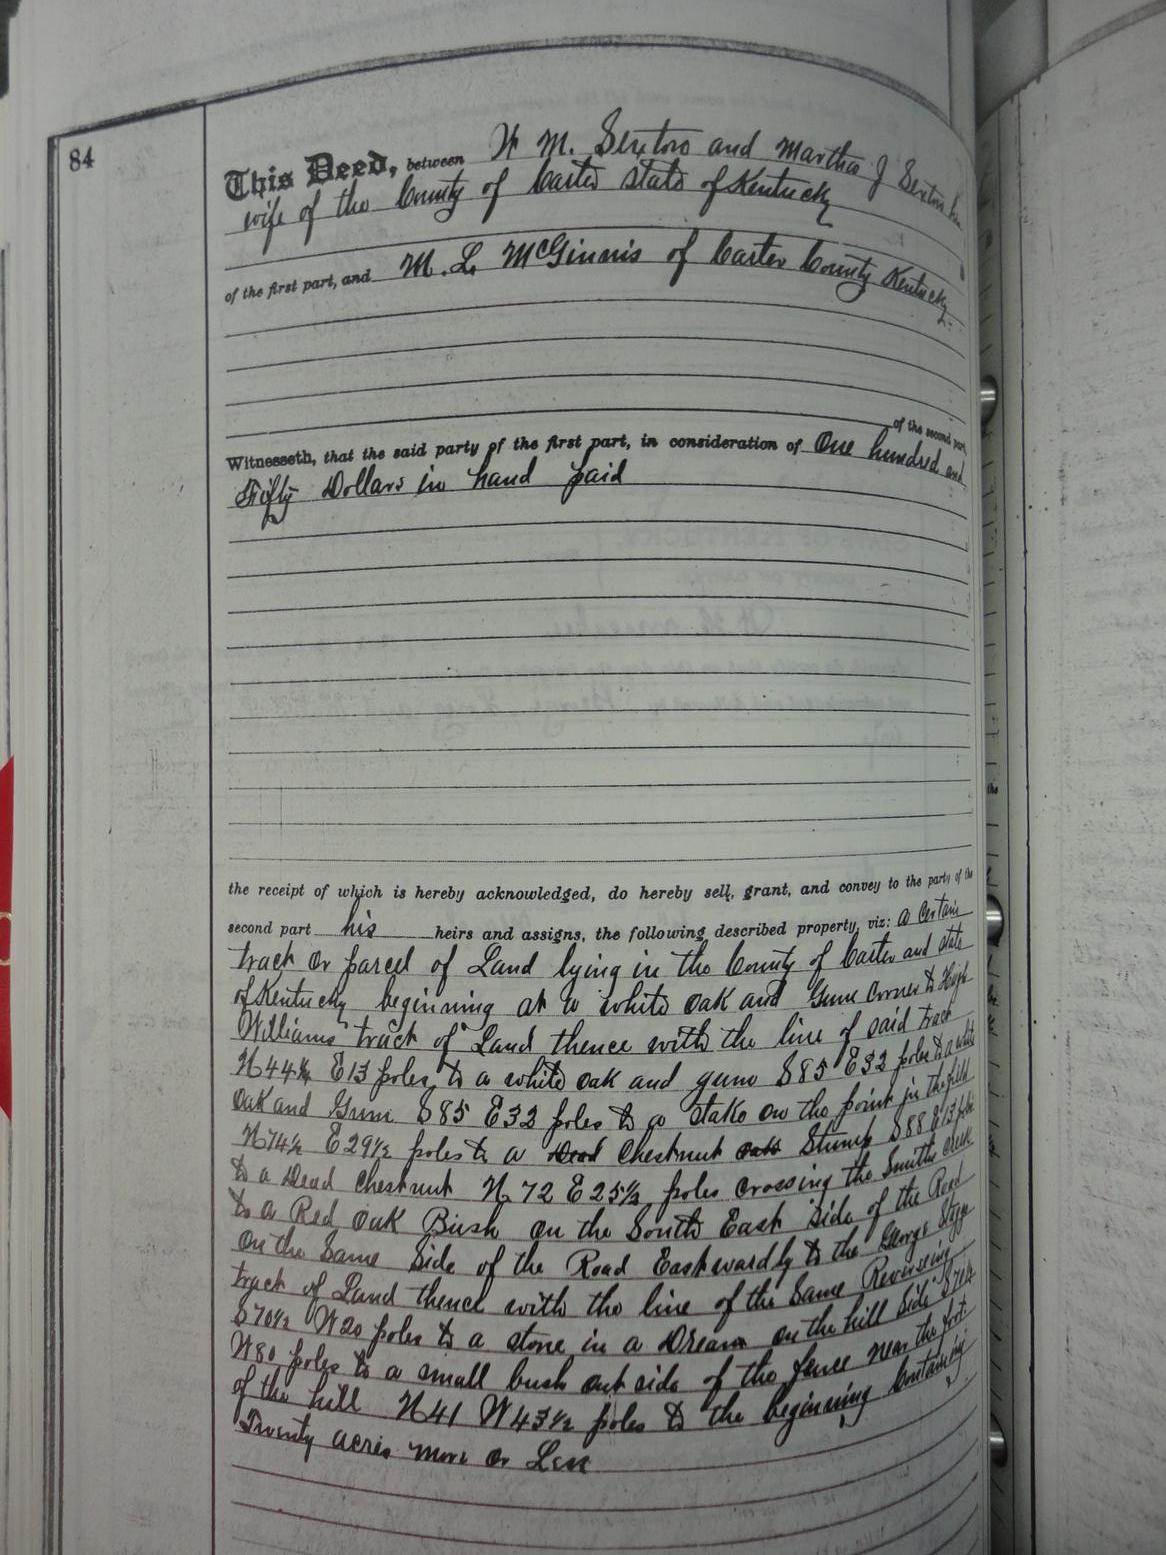 84
This Deed, between W M. Sexton and Martha J Sexton his
wife of the County of Carter State of Kentucky
of the first part, and M. L. McGinnis of Carter County Kentucky.
of the second part,
Witnesseth, that the said party of the first part, in consideration of One hundred and
Fifty Dollars in hand paid
the receipt of which is hereby acknowledged, do hereby sell, grant, and convey to the party of the
second part his heirs and assigns, the following described property, viz: a Certain
track or parcel of Land lying in the County of Carter and state
of Kentucky beginning at a white oak and Gum Corner to Hugh
Williams track of Land thence with the line of said track
N44½ E13 poles to a white oak and gum S85 E32 poles to a white
oak and Gum S85 E32 poles to a stake on the point in the field
N74½ E29½ poles to a Dead Chestnut oak Stump S88 E13 poles
to a Dead Chestnut N 72 E25½ poles crossing the Smiths creek
to a Red oak Bush on the South East side of the Road
on the Same Side of the Road Eastwardly to the George
track of Land thence with the line of the Same Reversing
S70½ W20 poles to a stone in a Dream on the hill side S70½
W80 poles to a small bush out side of the fence near the foot
of the hill N41 W43½ poles to the beginning Containing
Twenty acres more or Less